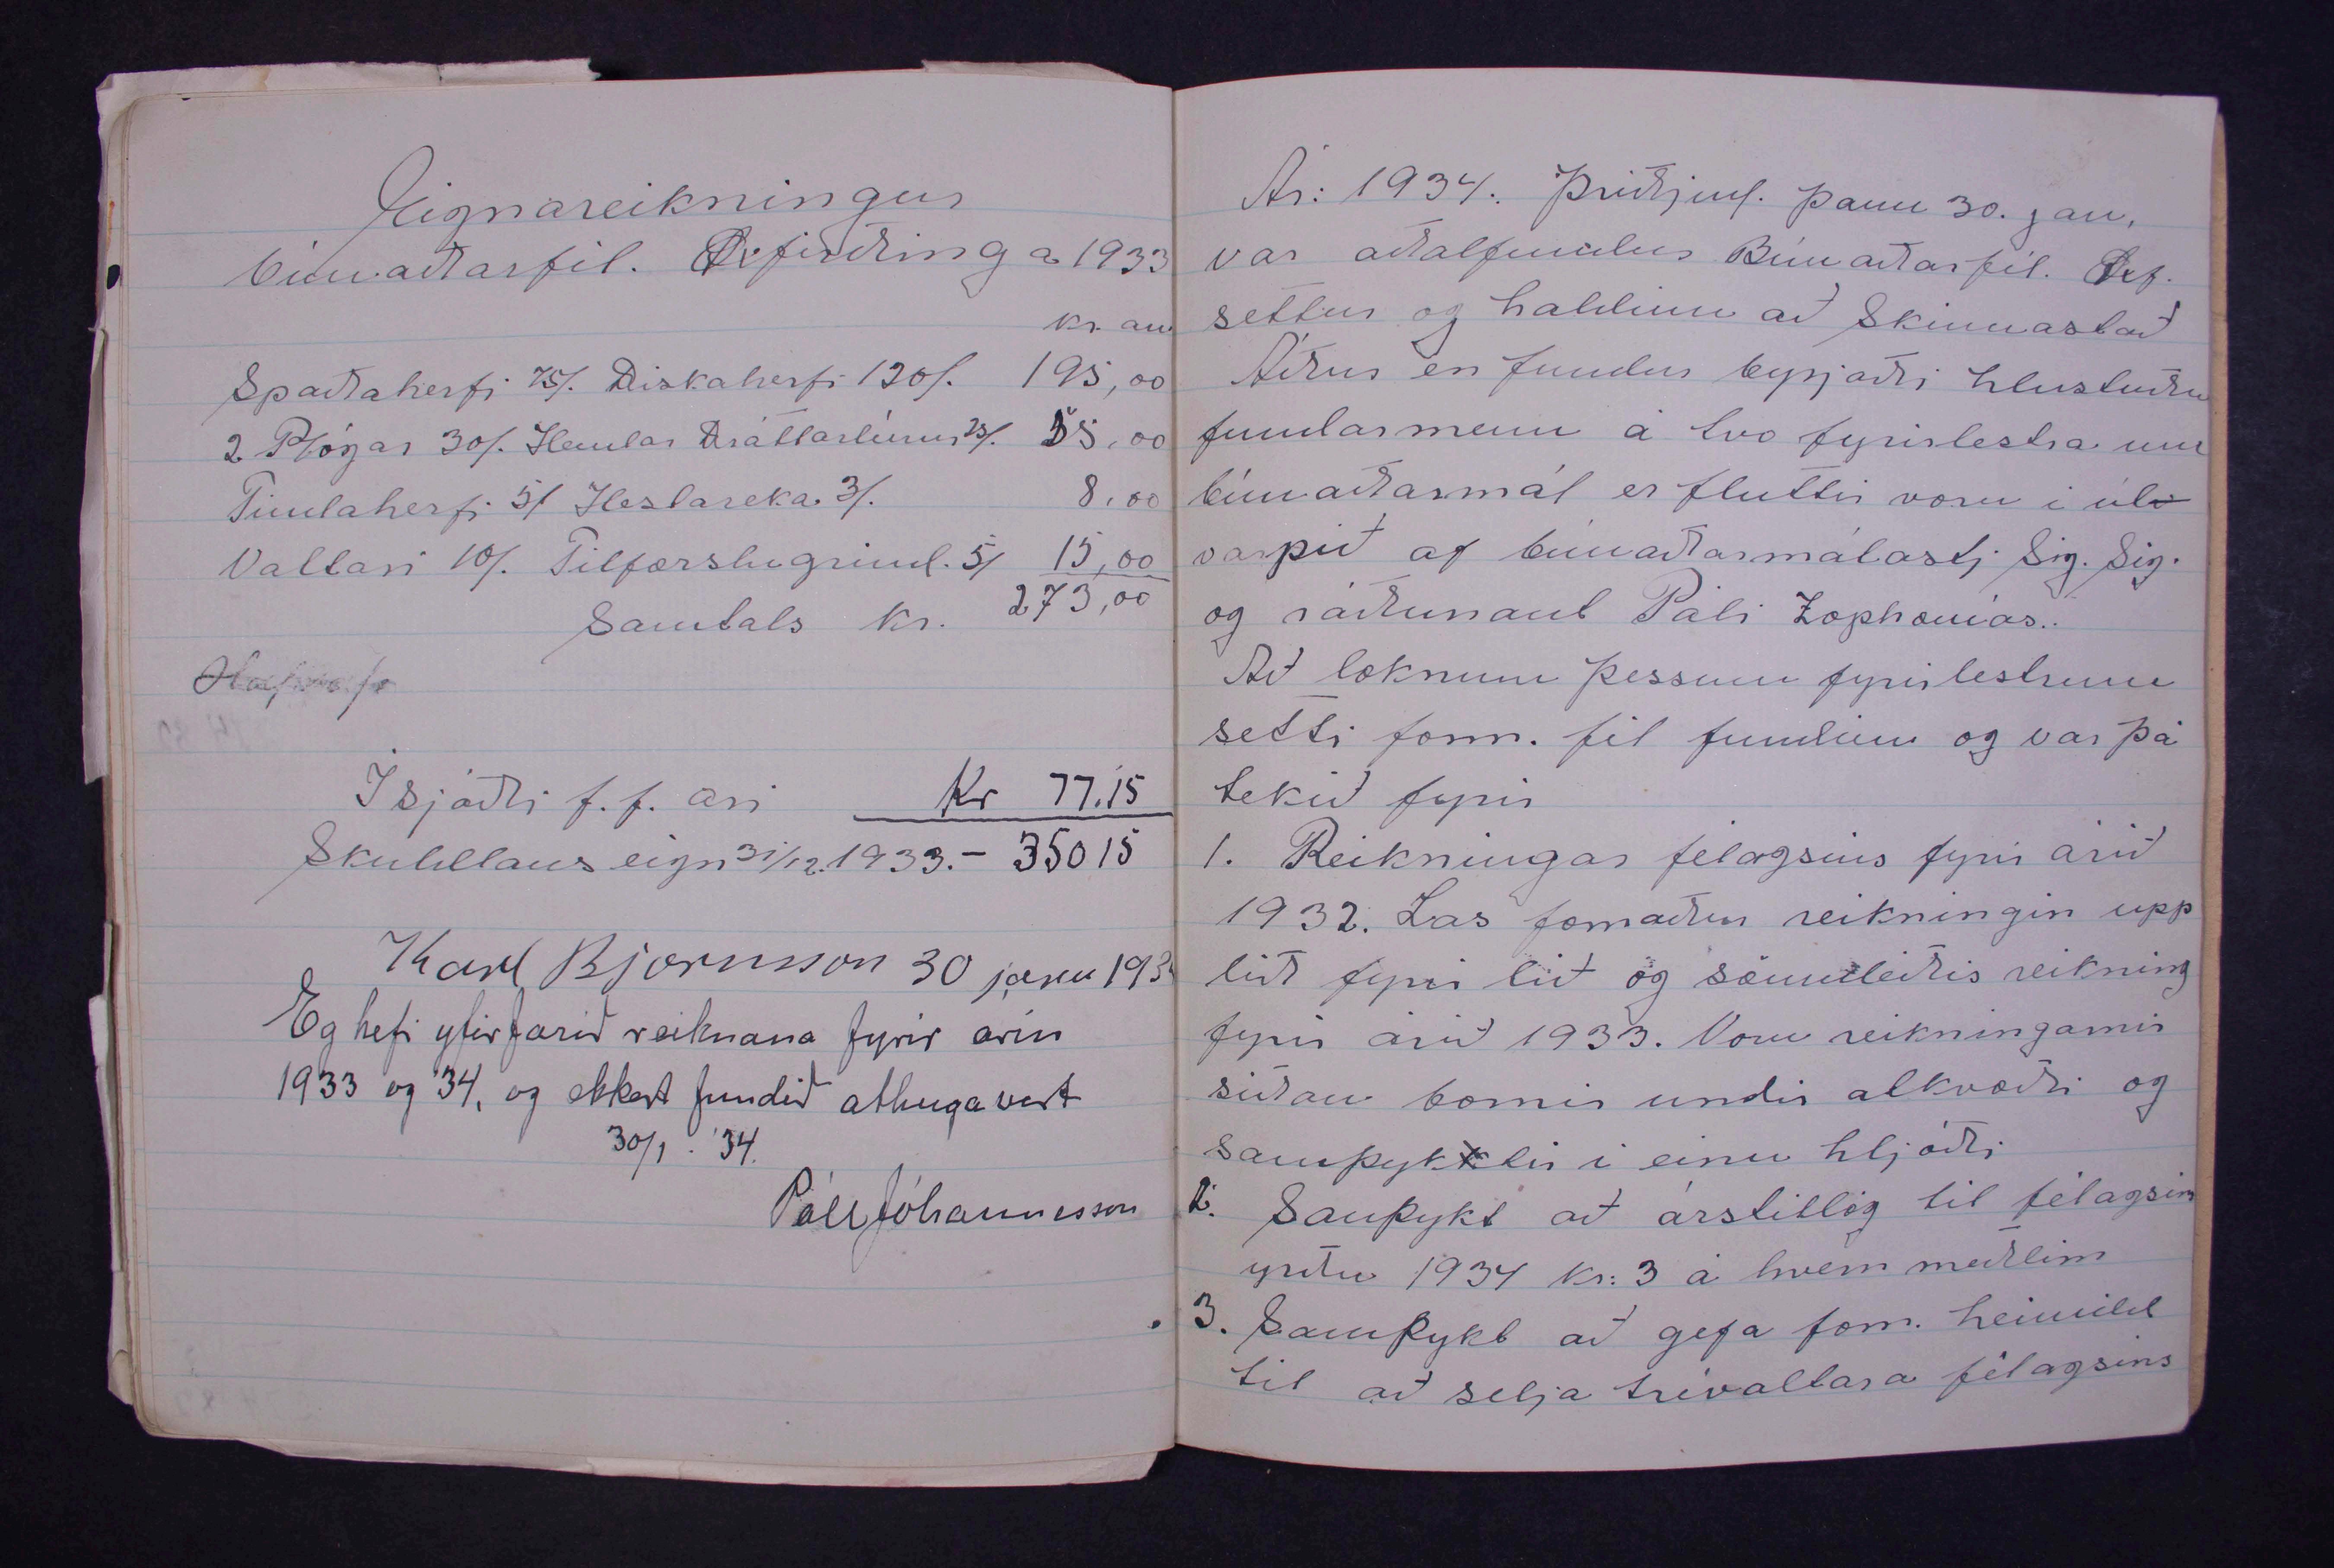 Eignareikningur
búnaðarfél. Öxfirðinga 1933
kr. au
Spaðaherfi 75/. Diskaherfi 120/. 195,00
2 Plógar 30/. Hemlar Dráttarlínur 25/. 55,00
Tindaherfi 5/ Hestareka 3/. 8,00
Valtari 10/. Tilfærslugrind. 5/ 15,00
Samtals kr. 273,00
Í sjóði f. f. ári Kr 77.15
Skuldlaus eign 31/12. 1933. - 35015
Karl Björnsson 30 janu 193
Eg hefi yfirfarið reiknana fyrir árin
1933 og '34, og ekkert fundið athugavert
30/1. '34.
Páll Jóhannesson
Ár: 1934. Þriðjud. þann 30. jan,
var aðalfundur Búnaðarfél. Öxf.
settur og haldinn að Skinnastað
Áður en fundur byrjaði hlustuðu
fundarmenn á tvo fyrirlestra um
búnaðarmál er fluttir voru í út
varpið af búnaðarmálastj Sig. Sig.
og ráðunaut Páli Zophonías..
Að loknum þessum fyrirlestrum
setti form. fél fundinn og var þá
tekið fyrir
1. Reikningar félagsins fyrir árið
1932. Las formaður reikningin upp
lið fyrir lið og sömuleiðis reikning
fyrir árið 1933. Voru reikningarnir
síðan bornir undir atkvæði og
samþyktir í einu hljóði
2. Samþykt að árstillög til félagsins
yrðu 1934 kr: 3 á hvern meðlim
3. Samþykt að gefa form. heimild
til að selja trévaltara félagsins